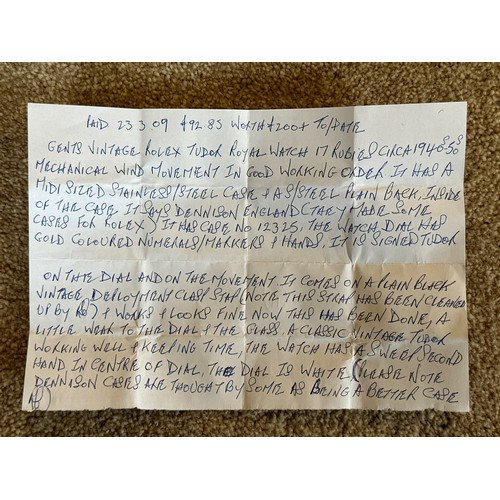 PAID 23 3 09 £92.85 WORTH £200+ TO/DATE
GENTS VINTAGE ROLEX TUDOR ROYAL WATCH 17 RUBIES CIRCA 1940'S-50'S
MECHANICAL WIND MOVEMENT IN GOOD WORKING ORDER IT HAS A
MIDI SIZED STAINLESS/STEEL CASE + A S/STEEL PLAIN BACK, INSIDE
OF THE CASE IT SAYS DENNISON ENGLAND (THEY MADE SOME
CASES FOR ROLEX) IT HAS CASE NO 12325, THE WATCH DIAL HAS
GOLD COLOURED NUMERALS/MARKERS + HANDS, IT IS SIGNED TUDOR
ON THE DIAL AND ON THE MOVEMENT. IT COMES ON A PLAIN BLACK
VINTAGE DEPLOYMENT CLASP STAP (NOTE THIS STRAP HAS BEEN CLEANED
UP BY) + WORKS + LOOKS FINE NOW THIS HAS BEEN DONE, A
LITTLE WEAR TO THE DIAL + THE GLASS. A CLASSIC VINTAGE TUDOR
WORKING WELL + KEEPING TIME, THE WATCH HAS A SWEEP SECOND
HAND IN CENTRE OF DIAL, THE DIAL IS WHITE (PLEASE NOTE
DENNISON CASES ARE THOUGHT BY SOME AS BEING A BETTER CASE